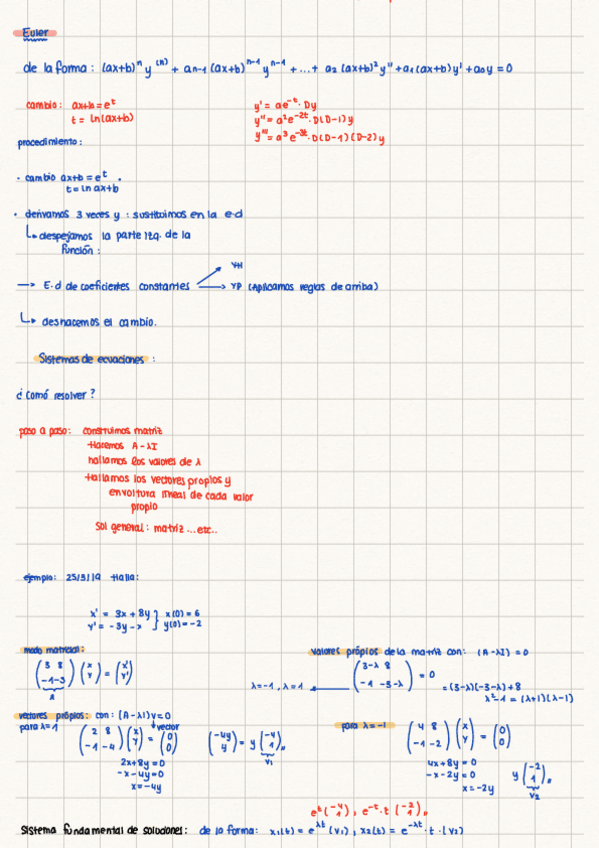 Euler
de la forma: (ax+b)ⁿ y⁽ⁿ⁾ + aₙ₋₁ (ax+b)ⁿ⁻¹ yⁿ⁻¹ + ... + a₂ (ax+b)² y'' + a₁(ax+b)y' + a₀y = 0
cambio: ax+b = eᵗ
t = ln(ax+b)
y' = ae⁻ᵗ · Dy
y'' = a²e⁻²ᵗ · D(D-1)y
y''' = a³e⁻³ᵗ · D(D-1)(D-2)y
procedimiento:
· cambio ax+b = eᵗ .
t = ln ax+b
· derivamos 3 veces y : sustituimos en la e.d
↳ despejamos la parte izq. de la
función:
→ E.d de coeficientes constantes
YH
YP (Aplicamos reglas de arriba)
↳ deshacemos el cambio.
Sistemas de ecuaciones :
¿ Comó resolver ?
paso a paso: construimos matriz
Hacemos A - λI
hallamos los valores de λ
Hallamos los vectores propios y
envoltura lineal de cada valor
propio
Sol general: matriz ...etc..
ejemplo: 25/3/19 Halla:
x' = 3x + 8y } x(0) = 6
y' = -3y - x } y(0) = -2
modo matricial:
(3 8 / -1 -3) (x / y) = (x' / y')
A
valores própios de la matriz con: (A - λI) = 0
(3-λ 8 / -1 -3-λ) = 0
= (3-λ)(-3-λ) + 8
λ² - 1 = (λ+1)(λ-1)
λ = -1 , λ = 1
vectores própios: con: (A - λI)v = 0
vector
para λ = 1
(2 8 / -1 -4) (x / y) = (0 / 0)
(-4y / y) = y (-4 / 1)
v₁
2x + 8y = 0
-x - 4y = 0
x = -4y
para λ = -1
(4 8 / -1 -2) (x / y) = (0 / 0)
4x + 8y = 0
-x - 2y = 0
x = -2y
y (-2 / 1)
v₂
eᵗ (-4 / 1) , e⁻ᵗ · t (-2 / 1)
Sistema fundamental de soluciones: de la forma: x₁(t) = e^λt (v₁) , x₂(t) = e^-λt · t · (v₂)